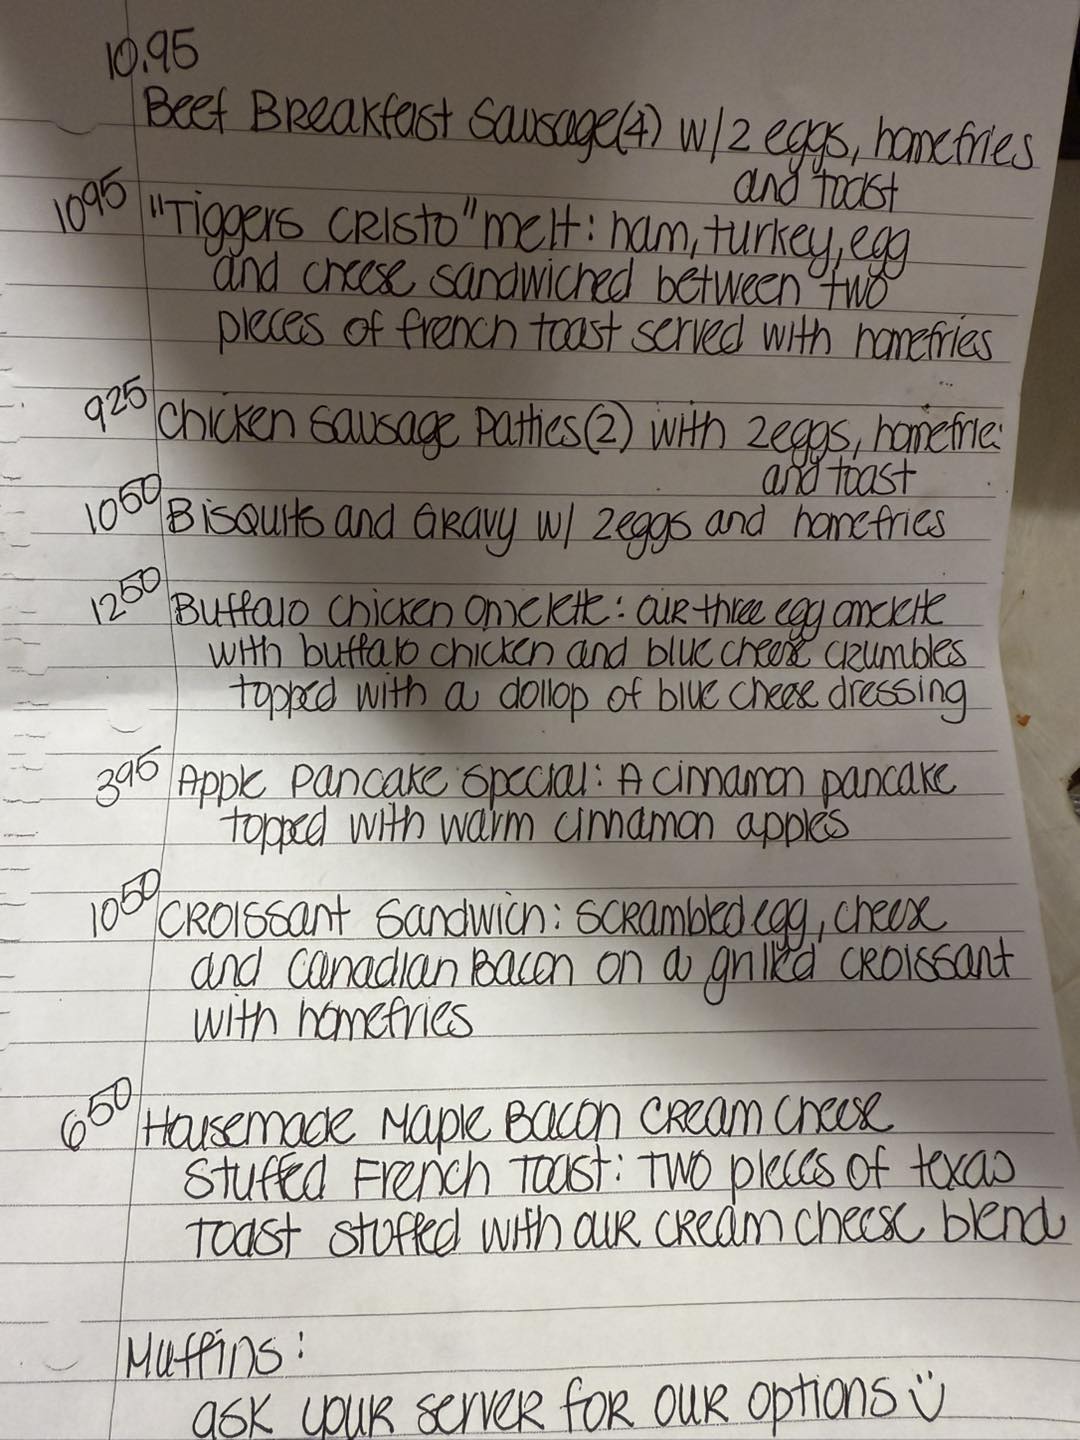 10.95
Beef Breakfast Sausage(4) w/2 eggs, homefries
and toast
1095 "Tiggers Cristo" melt: ham, turkey, egg
and cheese sandwiched between two
pieces of french toast served with homefries
925 Chicken Sausage Patties(2) with 2eggs, homefries
and toast
1050 Bisquits and Gravy w/ 2eggs and homefries
1250 Buffalo Chicken Omelette: our three egg omelette
with buffalo chicken and blue cheese crumbles
topped with a dollop of blue cheese dressing
395 Apple Pancake Special: A cinnamon pancake
topped with warm cinnamon apples
1050 Croissant Sandwich: scrambled egg, cheese
and Canadian Bacon on a grilled croissant
with homefries
650 Housemade Maple Bacon Cream Cheese
Stuffed French Toast: Two pieces of texas
toast stuffed with our cream cheese blend
Muffins:
ask your server for our options Ü